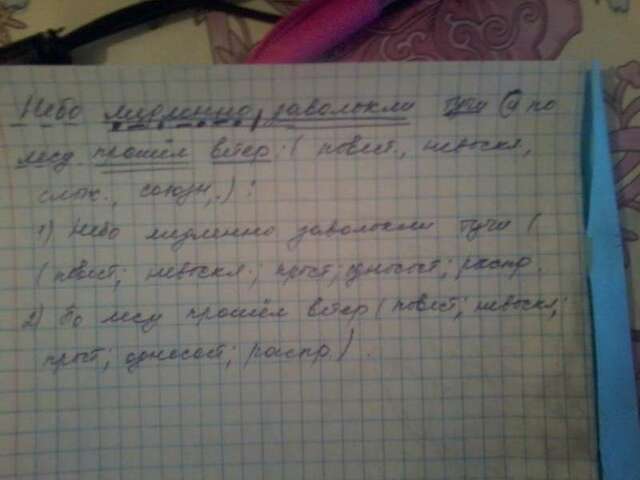 Небо медленно заволокли тучи и по
лесу прошёл ветер. ( повест., невоскл.,
слож., союзн.,) :
1) Небо медленно заволокли тучи (
(повест; невоскл.; прост; односост; распр.
2) По лесу прошёл ветер (повест; невоскл;
прост; односост; распр.).